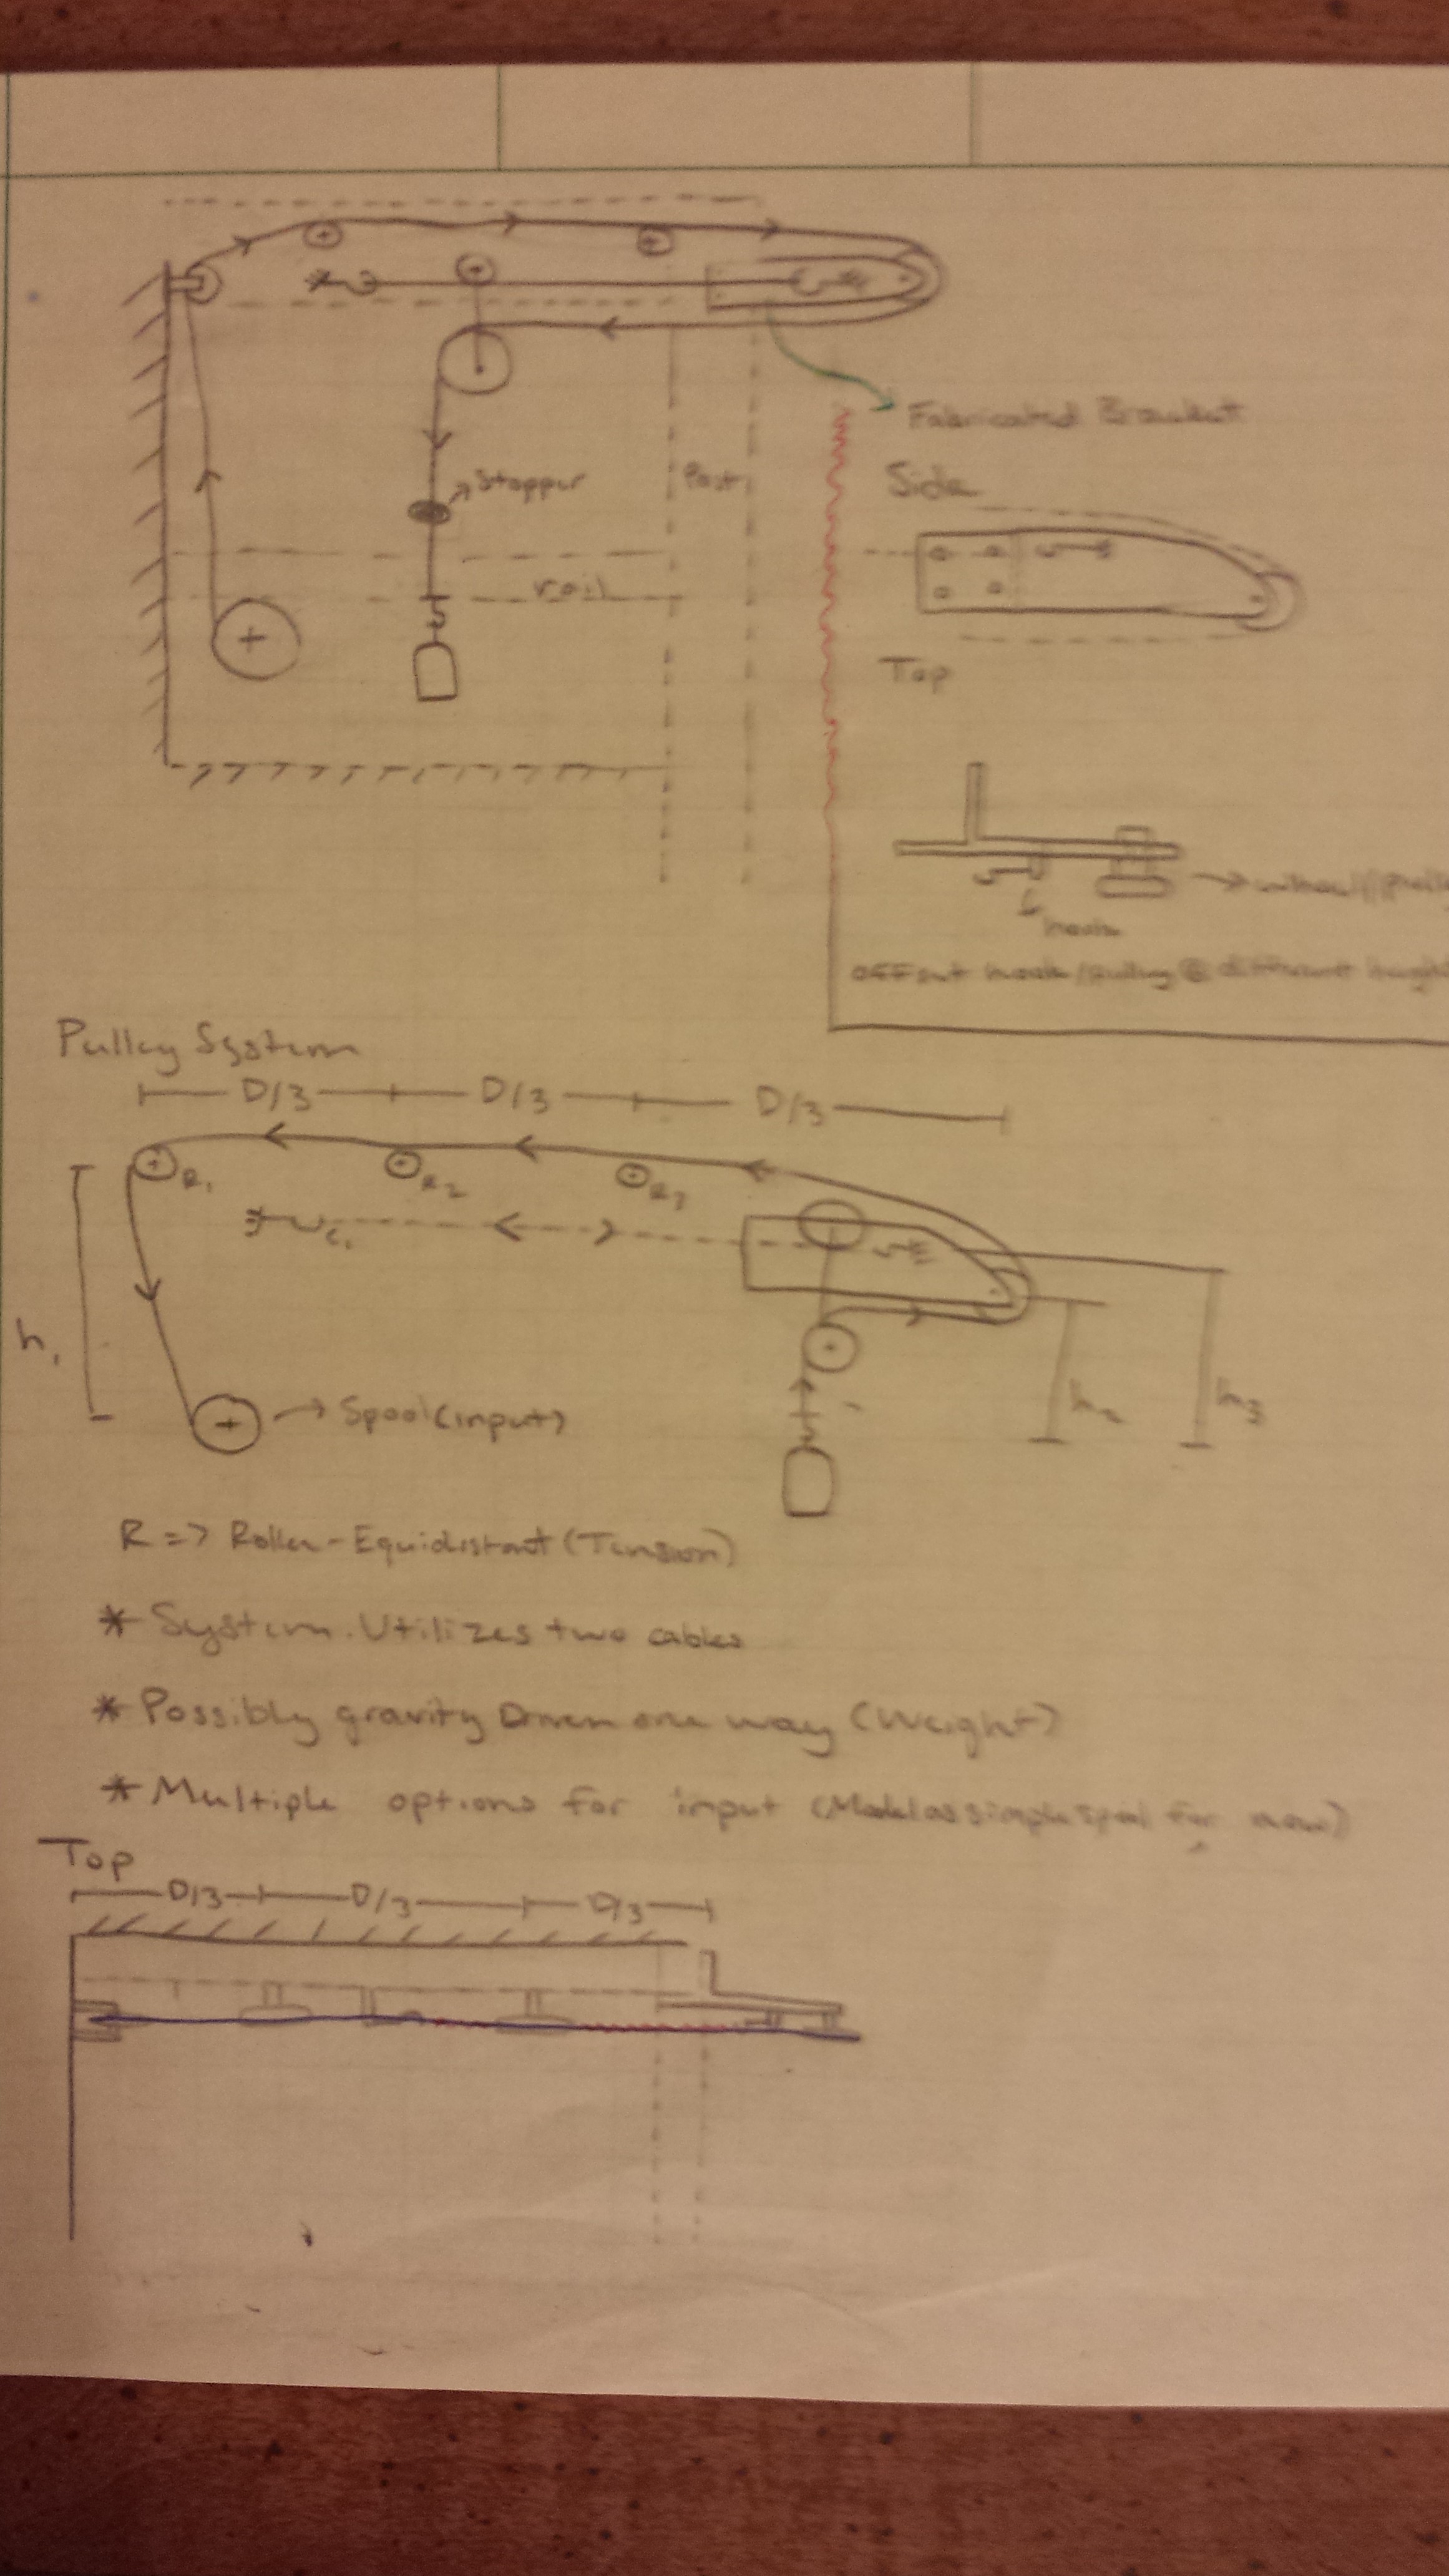 Stopper
Post
rail
Fabricated Bracket
Side
Top
hook
offset hook/pulley @ different
Pulley System
D/3 D/3 D/3
R₁ R₂ R₃
C₁
h₁
h₂ h₃
Spool (input)
R => Roller - Equidistant (Tension)
* System Utilizes two cables
* Possibly gravity Driven one way (Weight)
* Multiple options for input (Model as simple spool for now)
Top
D/3 D/3 D/3